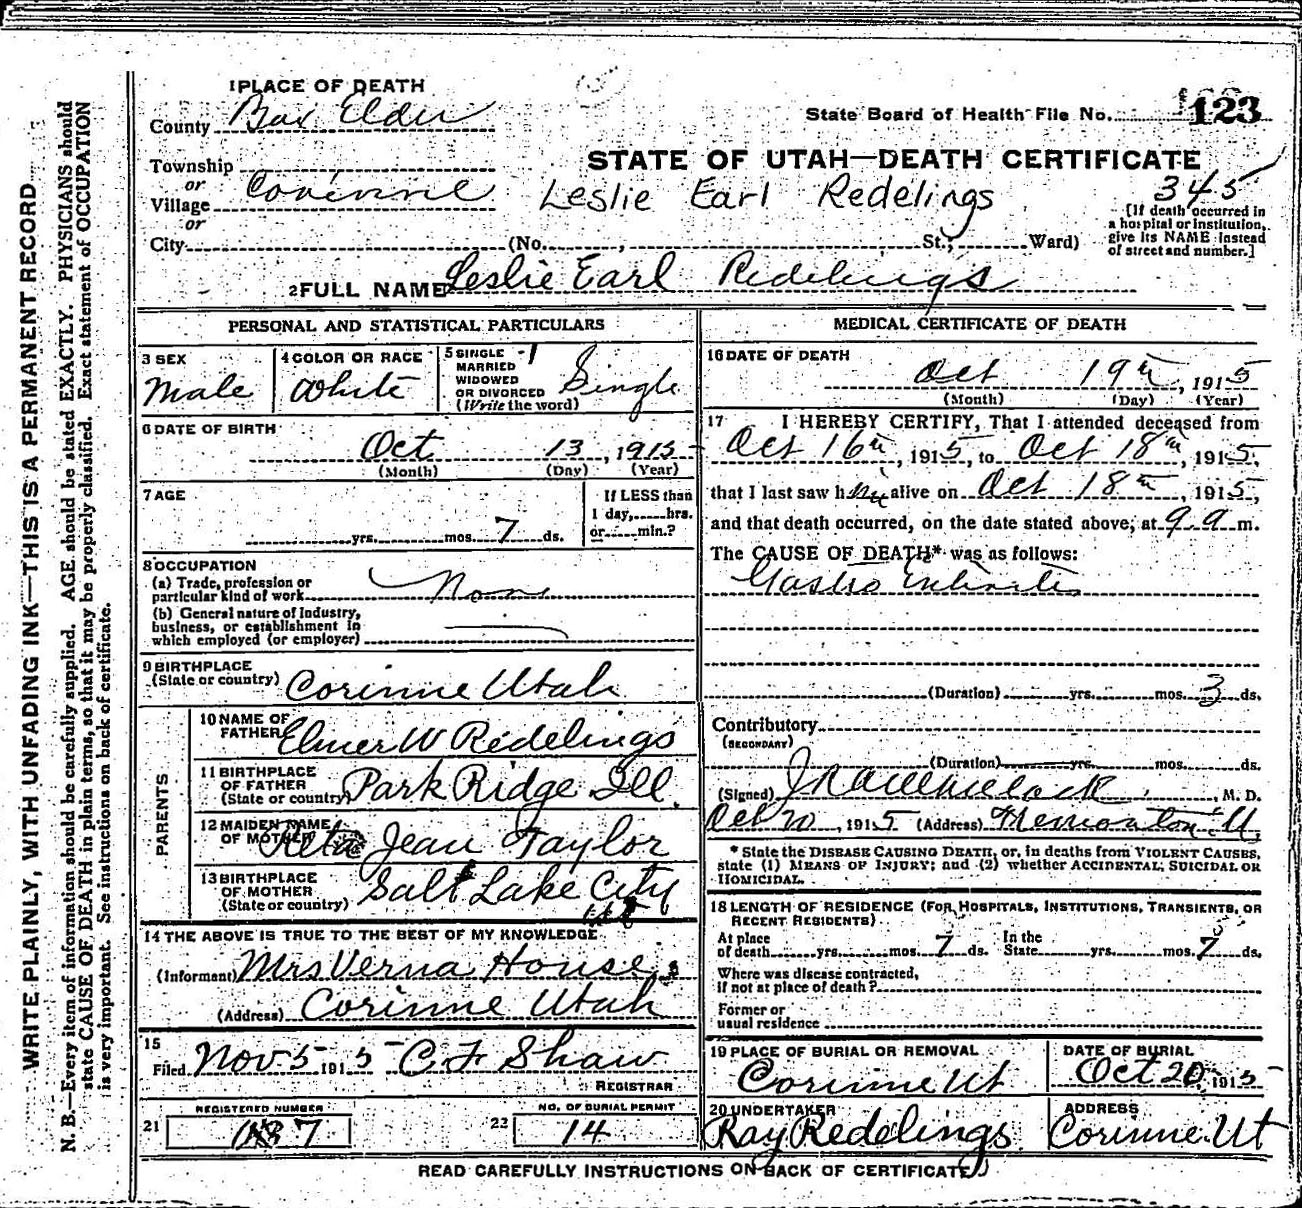 1 PLACE OF DEATH
County Box Elder
State Board of Health File No. 123
Township
or
Village Corinne
or
STATE OF UTAH—DEATH CERTIFICATE
Leslie Earl Redelings
345
[If death occurred in a hospital or institution, give its NAME instead of street and number.]
City (No. , St.; Ward)
2 FULL NAME Leslie Earl Redelings
PERSONAL AND STATISTICAL PARTICULARS
3 SEX
Male
4 COLOR OR RACE
White
5 SINGLE
MARRIED
WIDOWED
OR DIVORCED
(Write the word)
Single
6 DATE OF BIRTH
Oct 13, 1915
(Month) (Day) (Year)
7 AGE
yrs. mos. 7 ds.
If LESS than
1 day, hrs.
or min.?
8 OCCUPATION
(a) Trade, profession or
particular kind of work None
(b) General nature of Industry,
business, or establishment in
which employed (or employer)
9 BIRTHPLACE
(State or country) Corinne Utah
PARENTS
10 NAME OF
FATHER Elmer W Redelings
11 BIRTHPLACE
OF FATHER
(State or country) Park Ridge Ill.
12 MAIDEN NAME
OF MOTHER Reta Jean Taylor
13 BIRTHPLACE
OF MOTHER
(State or country) Salt Lake City
Ut
14 THE ABOVE IS TRUE TO THE BEST OF MY KNOWLEDGE
(Informant) Mrs Verna House
(Address) Corinne Utah
15
Filed Nov 5 1915 C. F. Shaw
REGISTRAR
21 REGISTERED NUMBER
22 NO. OF BURIAL PERMIT
14
MEDICAL CERTIFICATE OF DEATH
16 DATE OF DEATH
Oct 19th, 1915
(Month) (Day) (Year)
17 I HEREBY CERTIFY, That I attended deceased from
Oct 16th, 1915, to Oct 18th, 1915,
that I last saw him alive on Oct 18th, 1915,
and that death occurred, on the date stated above, at 9 a m.
The CAUSE OF DEATH* was as follows:
Gastro Enteritis
(Duration) yrs. mos. 3 ds.
Contributory
(SECONDARY)
(Duration) yrs. mos. ds.
(Signed) , M. D.
Oct 20, 1915 (Address) Tremonton U.
* State the DISEASE CAUSING DEATH, or, in deaths from VIOLENT CAUSES,
state (1) MEANS OF INJURY; and (2) whether ACCIDENTAL, SUICIDAL OR
HOMICIDAL.
18 LENGTH OF RESIDENCE (FOR HOSPITALS, INSTITUTIONS, TRANSIENTS, OR
RECENT RESIDENTS)
At place
of death yrs. mos. 7 ds.
In the
State yrs. mos. 7 ds.
Where was disease contracted,
if not at place of death?
Former or
usual residence
19 PLACE OF BURIAL OR REMOVAL
Corinne Ut
DATE OF BURIAL
Oct 20 1915
20 UNDERTAKER
Ray Redelings
ADDRESS
Corinne Ut
READ CAREFULLY INSTRUCTIONS ON BACK OF CERTIFICATE
WRITE PLAINLY, WITH UNFADING INK—THIS IS A PERMANENT RECORD
N. B.—Every item of information should be carefully supplied. AGE should be stated EXACTLY. PHYSICIANS should
state CAUSE OF DEATH in plain terms, so that it may be properly classified. Exact statement of OCCUPATION
is very important. See instructions on back of certificate.